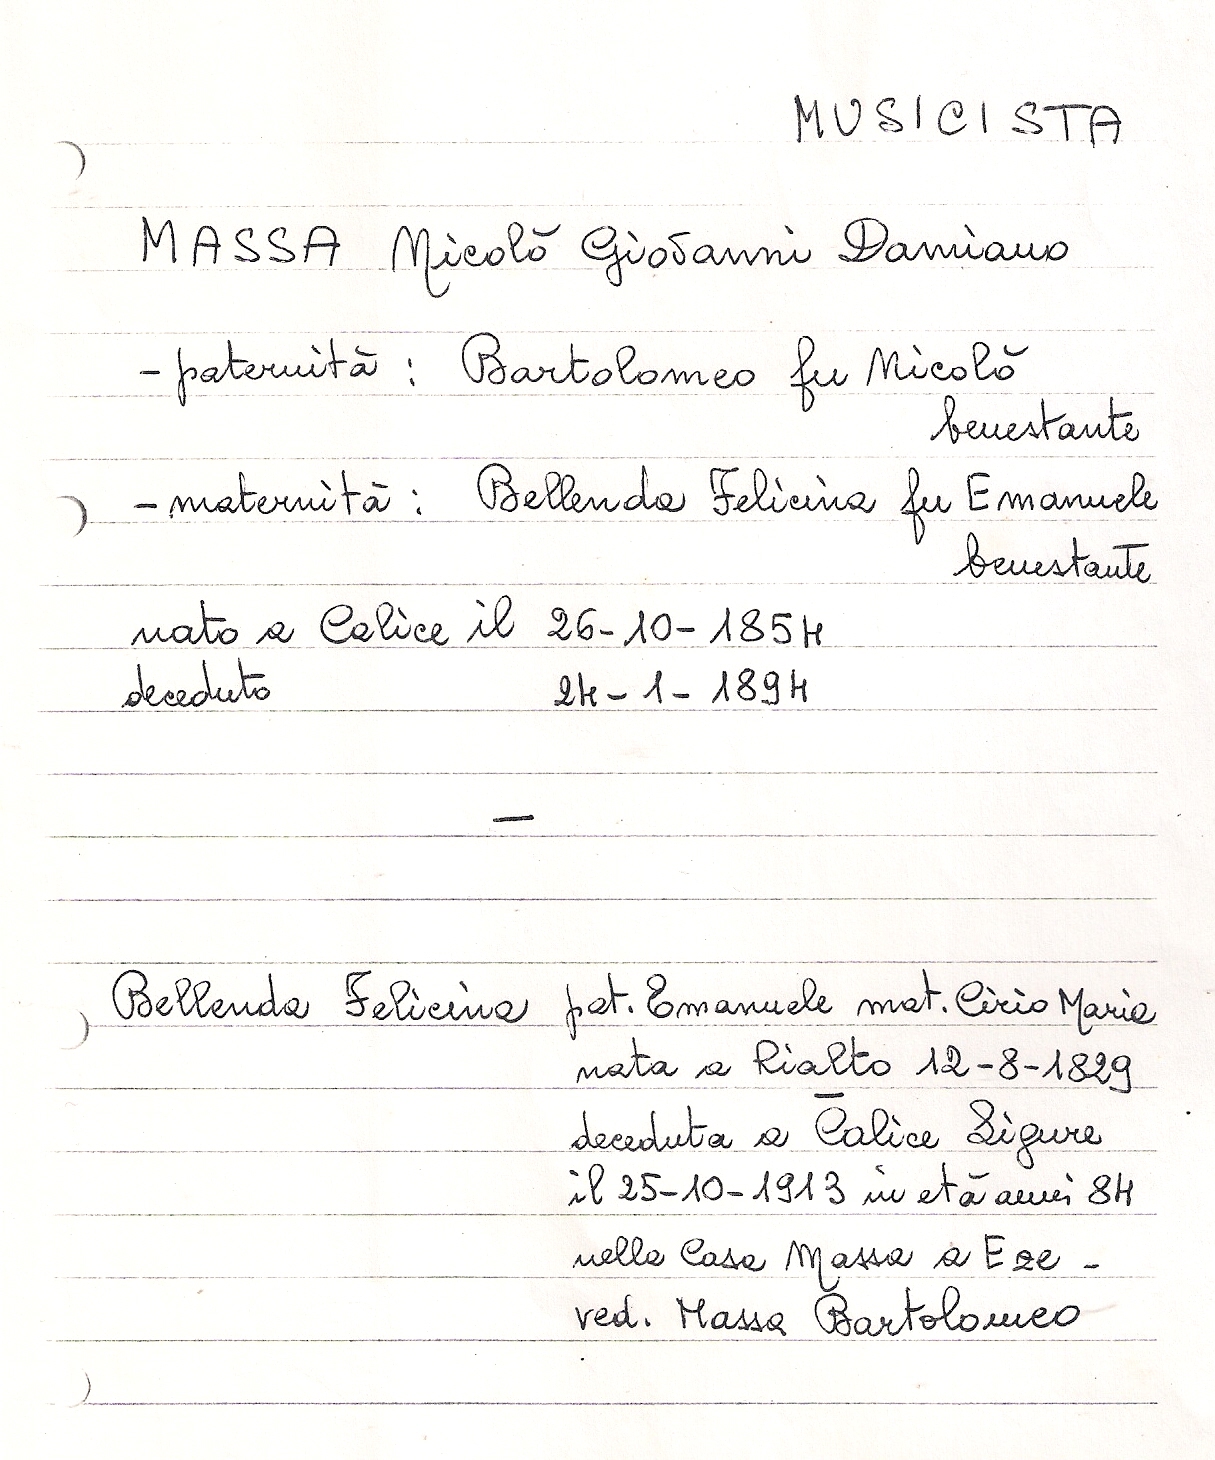 MUSICISTA
MASSA Nicolò Giovanni Damiano
- paternità : Bartolomeo fu Nicolò
benestante
- maternità : Bellenda Felicina fu Emanuele
benestante
nato a Calice il 26-10-1854
deceduto 24-1-1894
—
Bellenda Felicina pat. Emanuele mat. Cirio Maria
nata a Rialto 12-8-1829
deceduta a Calice Ligure
il 25-10-1913 in età anni 84
nella Casa Massa a Eze -
ved. Massa Bartolomeo